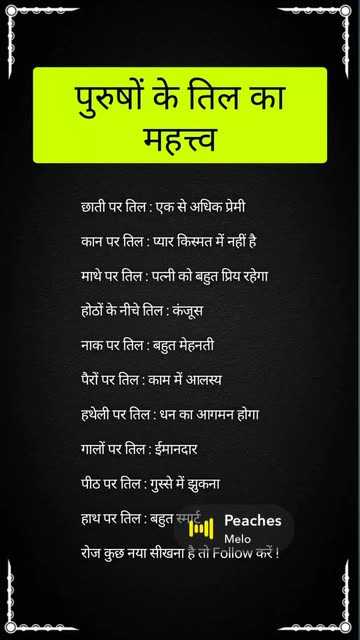 पुरुषों के तिल का
महत्त्व
छाती पर तिल : एक से अधिक प्रेमी
कान पर तिल : प्यार किस्मत में नहीं है
माथे पर तिल : पत्नी को बहुत प्रिय रहेगा
होठों के नीचे तिल : कंजूस
नाक पर तिल : बहुत मेहनती
पैरों पर तिल : काम में आलस्य
हथेली पर तिल : धन का आगमन होगा
गालों पर तिल : ईमानदार
पीठ पर तिल : गुस्से में झुकना
हाथ पर तिल : बहुत स्मार्ट
Peaches
Melo
रोज कुछ नया सीखना है तो Follow करें !